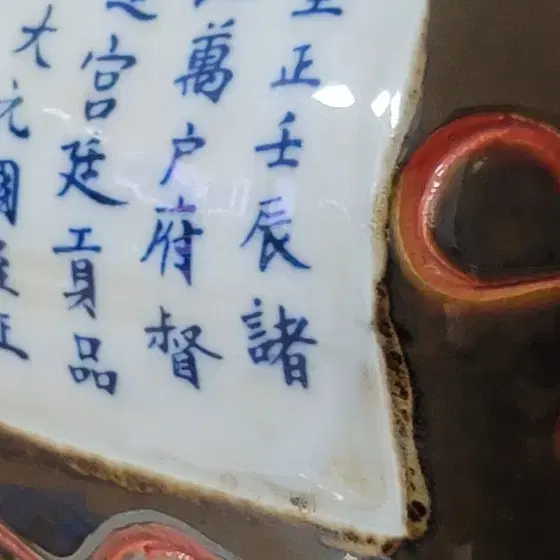 正壬辰諸
萬户府督
宫廷貢品
大元國